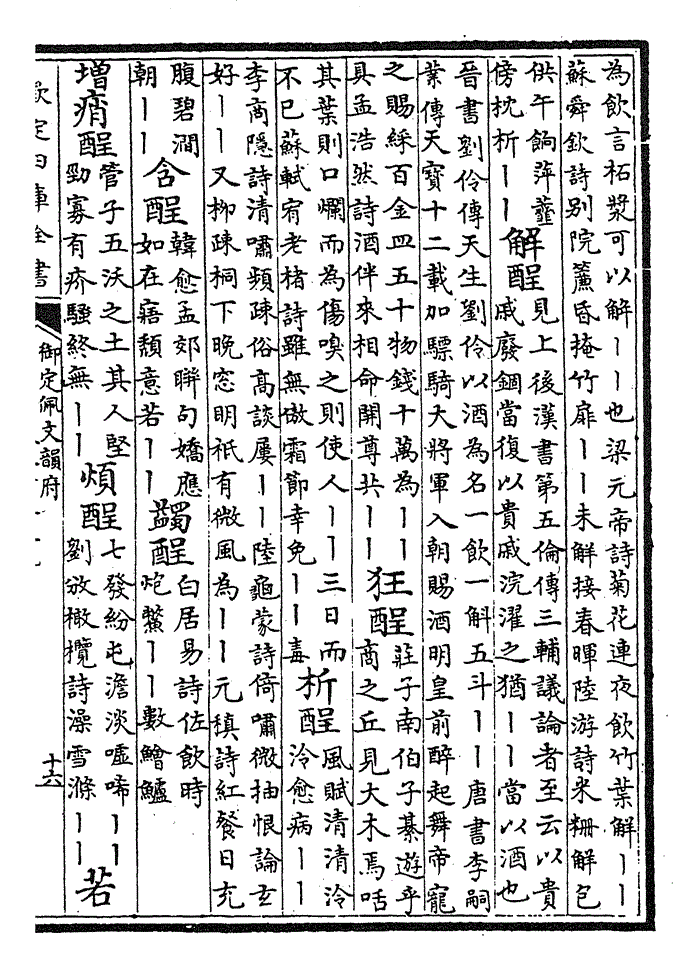 為飲言柘漿可以解丨丨也梁元帝詩菊花連夜飲竹葉解丨丨
蘇舜欽詩別院簾昏掩竹扉丨丨未解接春暉陸游詩米粣解包
供午餉萍虀
傍枕析丨丨
解酲
見上後漢書第五倫傳三輔議論者至云以貴
戚廢錮當復以貴戚浣濯之猶丨丨當以酒也
晉書劉伶傳天生劉伶以酒為名一飲一斛五斗丨丨唐書李嗣
業傳天寶十二載加驃騎大將軍入朝賜酒明皇前醉起舞帝寵
之賜綵百金皿五十物錢十萬為丨丨
具孟浩然詩酒伴來相命開尊共丨丨
狂酲
莊子南伯子綦遊乎
商之丘見大木焉咶
其葉則口爛而為傷嗅之則使人丨丨三日而
不已蘇軾宥老楮詩雖無傲霜節幸免丨丨毒
析酲
風賦清清泠
泠愈病丨丨
李商隱詩清嘯頻疎俗高談屢丨丨陸龜蒙詩倚嘯微抽恨論玄
好丨丨又栁疎桐下晚窓明祇有微風為丨丨元稹詩紅餐日充
腹碧澗
朝丨丨
含酲
韓愈孟郊聨句嬌應
如在寤頹意若丨丨
蠲酲
白居易詩佐飲時
炮鱉丨丨數鱠鱸
增痟酲
管子五沃之土其人堅
勁寡有疥騷終無丨丨
煩酲
七發紛屯澹淡嘘唏丨丨
劉攽橄欖詩澡雪滌丨丨
若
欽定四庫全書
御定佩文韻府
十六